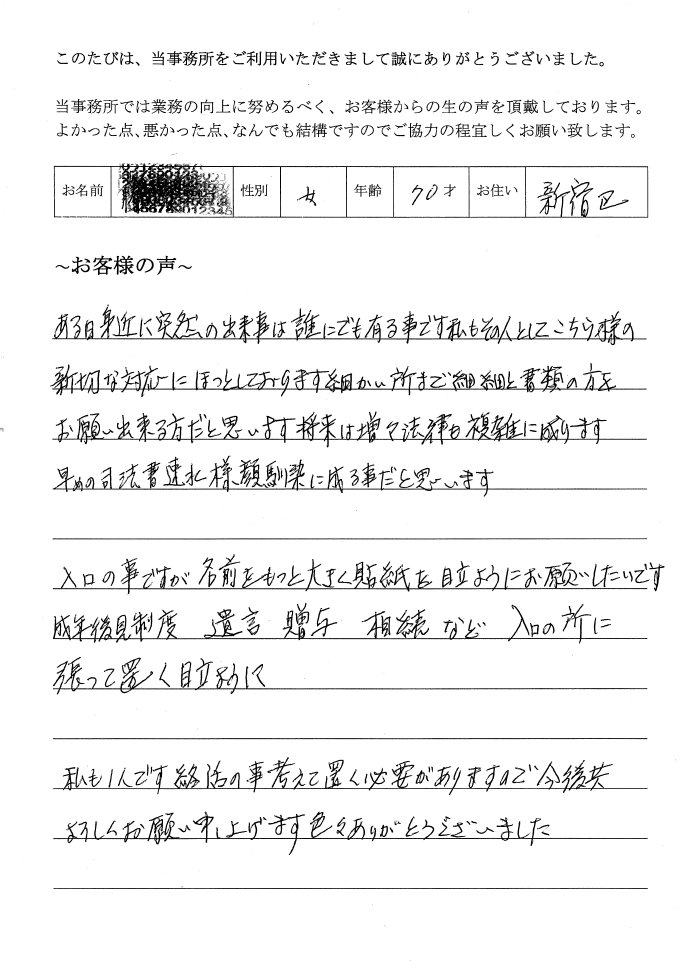 このたびは、当事務所をご利用いただきまして誠にありがとうございました。
当事務所では業務の向上に努めるべく、お客様からの生の声を頂戴しております。
よかった点、悪かった点、なんでも結構ですのでご協力の程宜しくお願い致します。
お名前 性別 女 年齢 70才 お住い 新宿区
~お客様の声~
ある日身近に突然の出来事は誰にでも有る事です私もその人としてこちら様の
新切な対応にほっとしております細かい所まで細細と書類の方を
お願い出来る方だと思います将来は増々法律も複雑に成ります
早めの司法書 様顔馴染に成る事だと思います
入口の事ですが名前をもっと大きく貼紙を目立ようにお願いしたいです
成年後見制度 遺言 贈与 相続など 入口の所に
張って置く目立ように
私も1人です終活の事考えて置く必要がありますので今後共
よろしくお願い申し上げます色々ありがとうございました